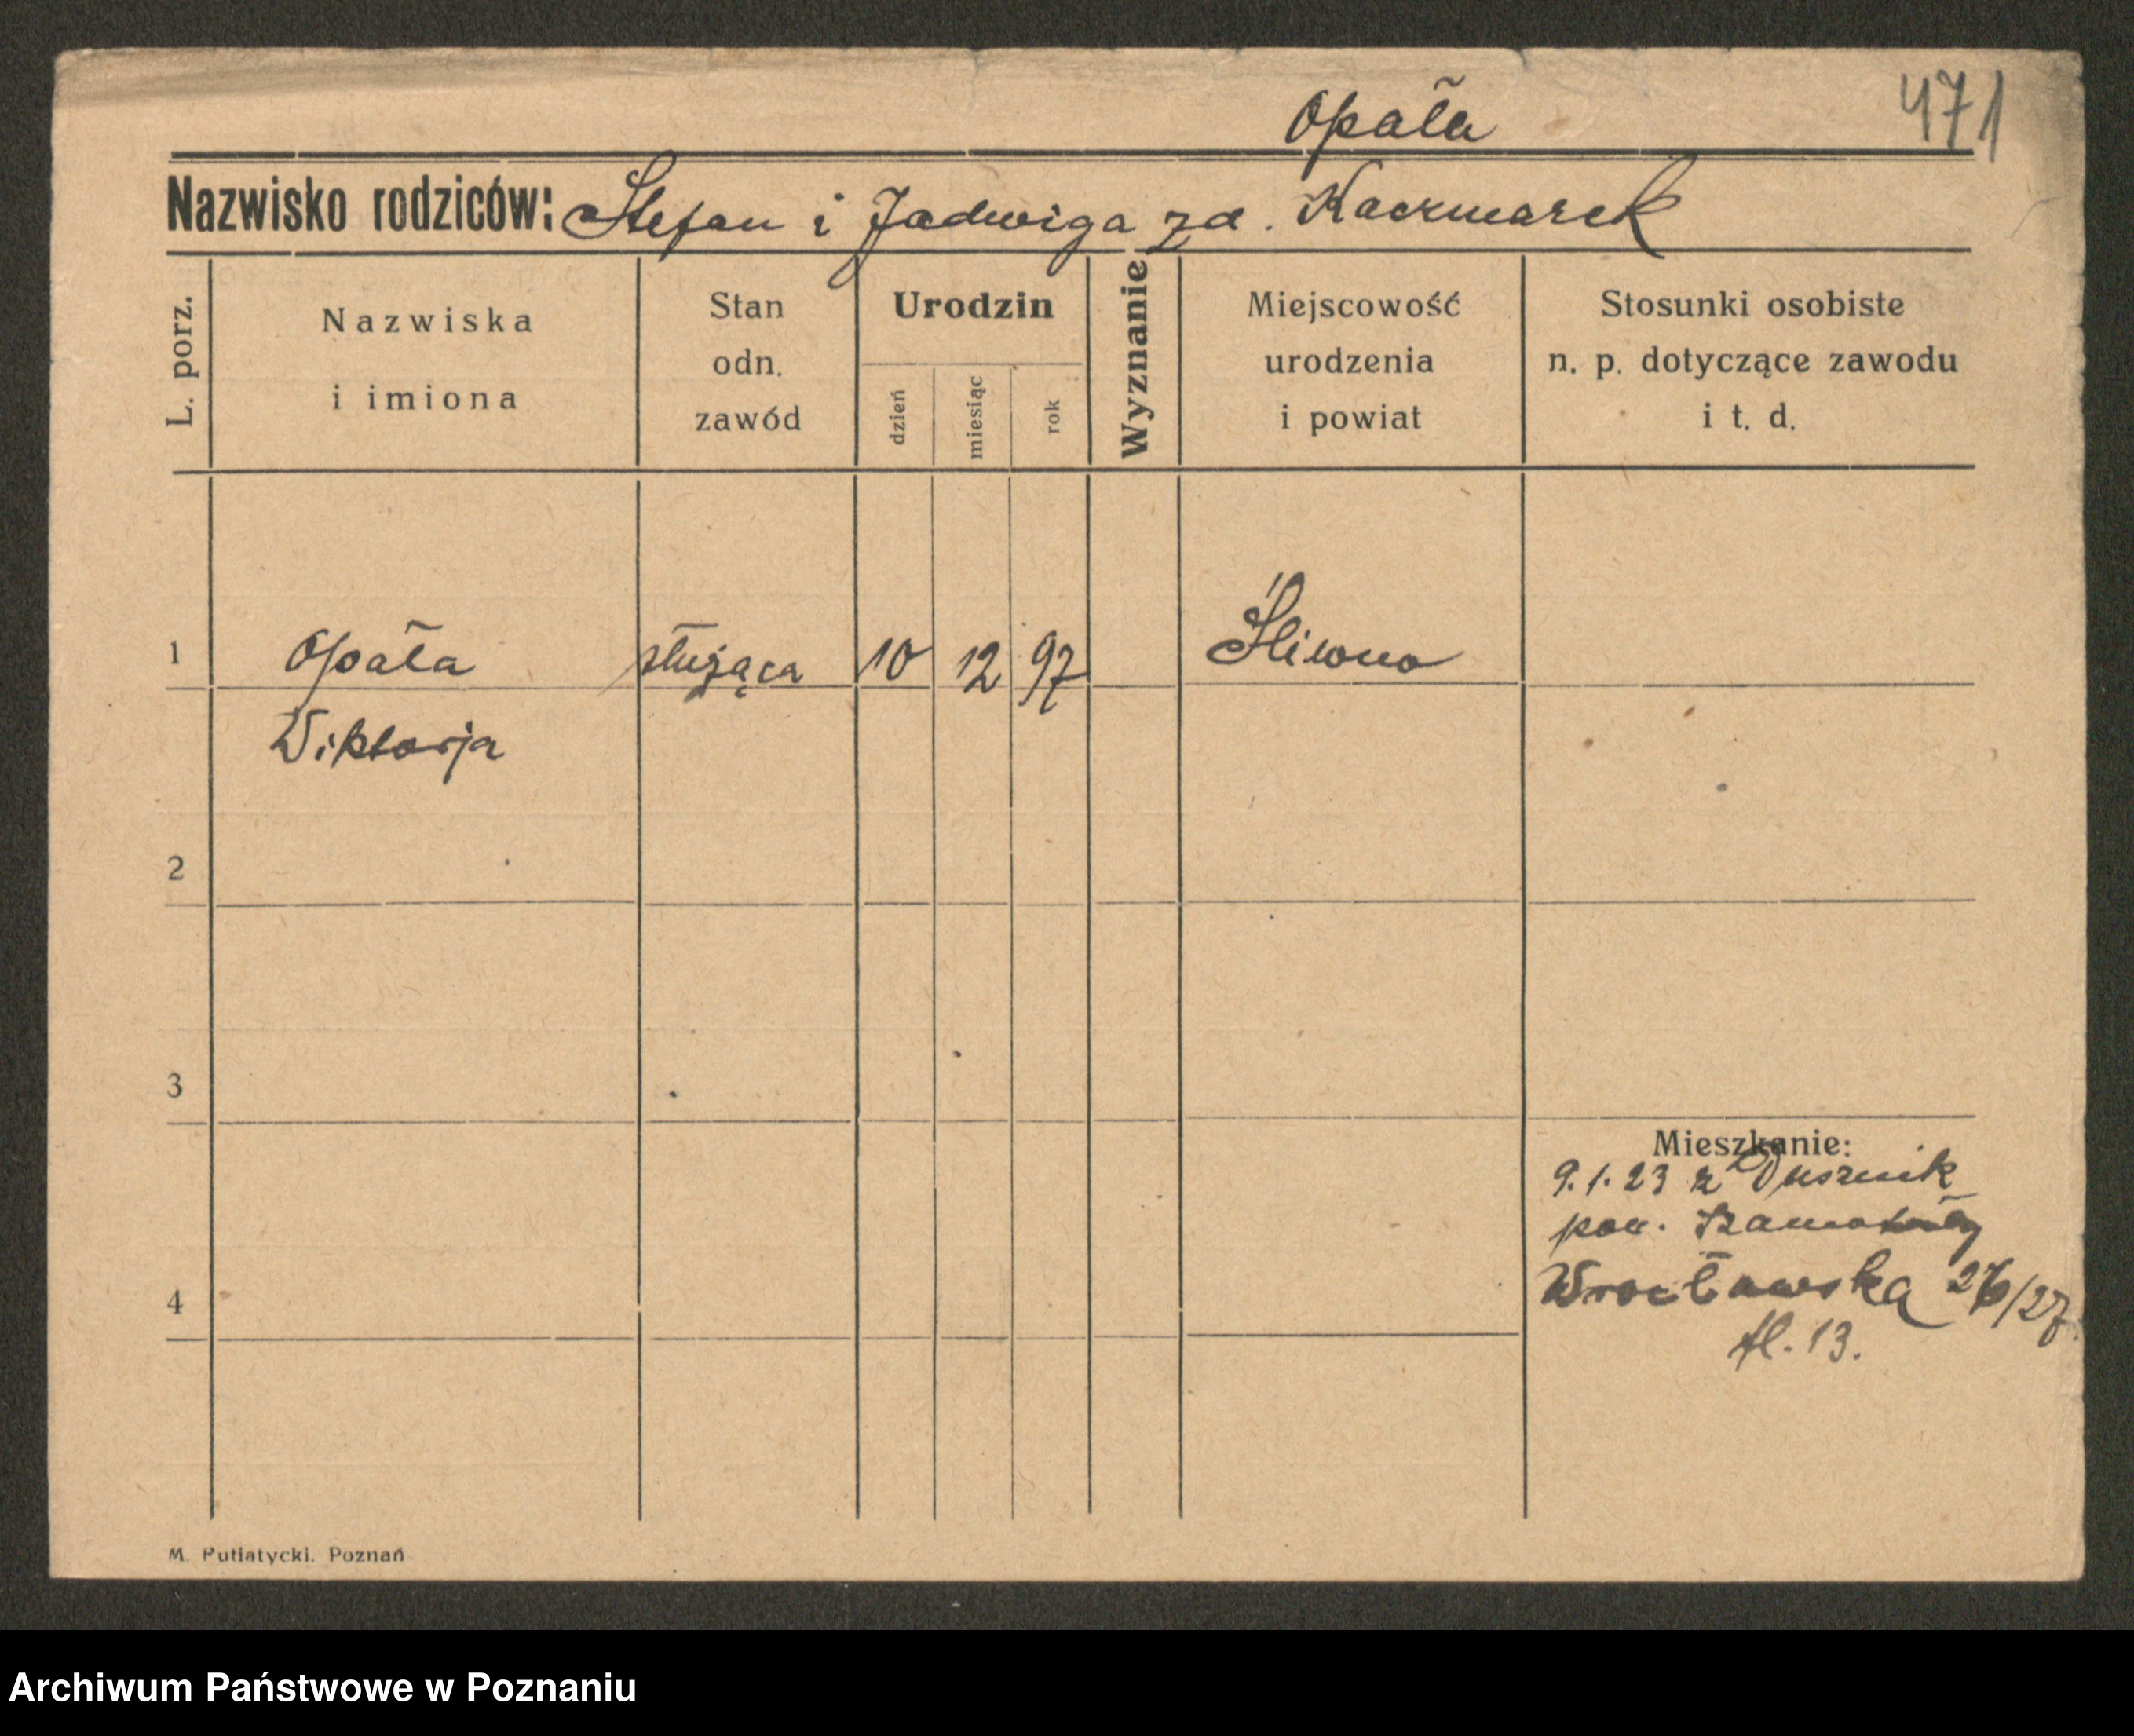 Opała 471
Nazwisko rodziców: Stefan i Jadwiga zd. Kaczmarek
L. porz.
Nazwiska
i imiona
Stan
odn.
zawód
Urodzin
dzień
miesiąc
rok
Wyznanie
Miejscowość
urodzenia
i powiat
Stosunki osobiste
n. p. dotyczące zawodu
i t. d.
1 Opała służąca 10 12 97 Śliwno
Wiktorja
2
3
Mieszkanie:
9.1.23 z Dusznik
pow. Szamotuły
4
Wrocławska 26/27
fl. 13.
M. Putiatycki. Poznań
Archiwum Państwowe w Poznaniu